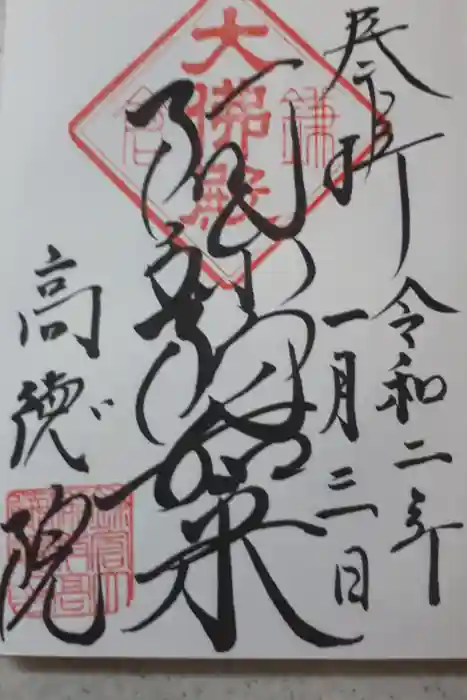 奉拝
令和二年
一月三日
阿弥陀如来
大佛殿
鎌倉
高徳院